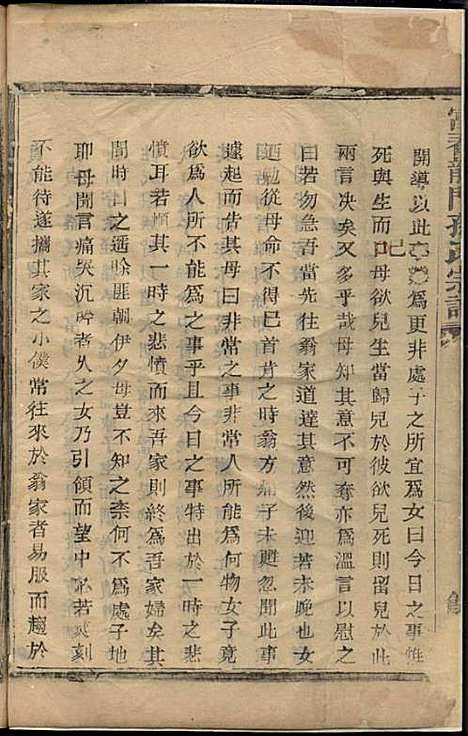 富春龍門孫氏宗譜
開導以此為更非處子之所宜為女曰今日之事惟
死與生而已母欲兒生當歸兒於彼欲兒死則留兒於此
兩言决矣又多乎哉母知其意不可奪亦為溫言以慰之
曰若勿急吾當先往翁家道達其意然後迎若未晚也女
廼勉從不得已首肯之時翁方痛子未甦忽聞此事
遽起而待其母曰非常之事非常人所能為何物女子竟
欲為人所不能為之事乎且今日之事特出於一時之悲
憤耳若順其一時之悲憤而來吾家則終為吾家婦矣其
間時日之遥賒匪朝伊夕母豈不知之柰何不為處子地
耶母聞言痛哭沉吟者久之女乃引領而望中心若
刻
不能待遂攜其家之小僕常往來於翁家者易服而趨於